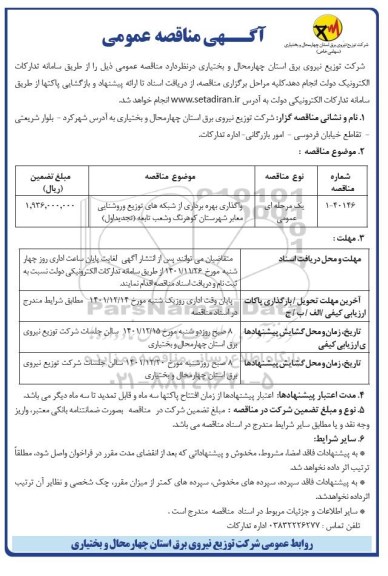 آگهی مناقصه عمومی
شرکت توزیع نیروی برق استان چهارمحال و بختیاری
(سهامی خاص)
شرکت توزیع نیروی برق استان چهارمحال و بختیاری درنظردارد مناقصه عمومی ذیل را از طریق سامانه تدارکات
الکترونیک دولت انجام دهد.کلیه مراحل برگزاری مناقصه، از دریافت اسناد تا ارائه پیشنهاد و بازگشایی پاکتها از طریق
سامانه تدارکات الکترونیکی دولت به آدرس www.setadiran.ir انجام خواهد شد.
۱. نام و نشانی مناقصه گزار: شرکت توزیع نیروی برق استان چهارمحال و بختیاری به آدرس شهرکرد - بلوار شریعتی
- تقاطع خیابان فردوسی - امور بازرگانی- اداره تدارکات.
۲. موضوع مناقصه :
شماره مناقصه نوع مناقصه موضوع مناقصه مبلغ تضمین (ریال)
۱-۴۰۱۴۶ یک مرحله ای عمومی واگذاری بهره برداری از شبکه های توزیع وروشنایی معابر شهرستان کوهرنگ وشعب تابعه (تجدیداول) ۱,۹۳۶,۰۰۰,۰۰۰
۳. مهلت :
مهلت و محل دریافت اسناد متقاضیان می توانند پس از انتشار آگهی لغایت پایان ساعت اداری روز چهار
شنبه مورخ ۱۴۰۱/۱۱/۲۶ از طریق سامانه تدارکات الکترونیکی دولت نسبت به
ثبت نام و دریافت اسناد مناقصه اقدام نمایند.
آخرین مهلت تحویل / بارگذاری پاکات ارزیابی کیفی /الف / ب / ج پایان وقت اداری روزیک شنبه مورخ ۱۴۰۱/۱۲/۱۴ مطابق شرایط مندرج
در اسناد مناقصه
تاریخ، زمان و محل گشایش پیشنهادها ی ارزیابی کیفی ۸ صبح روزدو شنبه مورخ ۱۴۰۱/۱۲/۱۵ سالن جلسات شرکت توزیع نیروی
برق استان چهارمحال و بختیاری
تاریخ، زمان و محل گشایش پیشنهادها ۸ صبح روزشنبه مورخ ۱۴۰۱/۱۲/۲۰ سالن جلسات شرکت توزیع نیروی
برق استان چهارمحال و بختیاری
۴. مدت اعتبار پیشنهادها: اعتبار پیشنهادها از زمان افتتاح پاکتها سه ماه و قابل تمدید تا سه ماه دیگر می باشد.
۵. نوع و مبلغ تضمین شرکت در مناقصه : مبلغ تضمین شرکت در مناقصه بصورت ضمانتنامه بانکی معتبر، واریز
وجه نقد و یا مطابق سایر شرایط مندرج در اسناد مناقصه می باشد.
۶. سایر شرایط:
به پیشنهادات فاقد امضا، مشروط، مخدوش و پیشنهاداتی که بعد از انقضای مدت مقرر در فراخوان واصل شود، مطلقاً
ترتیب اثر داده نخواهدشد.
به پیشنهادات فاقد سپرده، سپرده های مخدوش، سپرده های کمتر از میزان مقرر، چک شخصی و نظایر آن ترتیب
اثرداده نخواهد شد.
سایر اطلاعات و جزئیات مربوط در اسناد مناقصه مندرج است .
تلفن تماس : ۰۳۸۳۲۲۲۶۲۷۷ اداره تدارکات
روابط عمومی شرکت توزیع نیروی برق استان چهارمحال و بختیاری